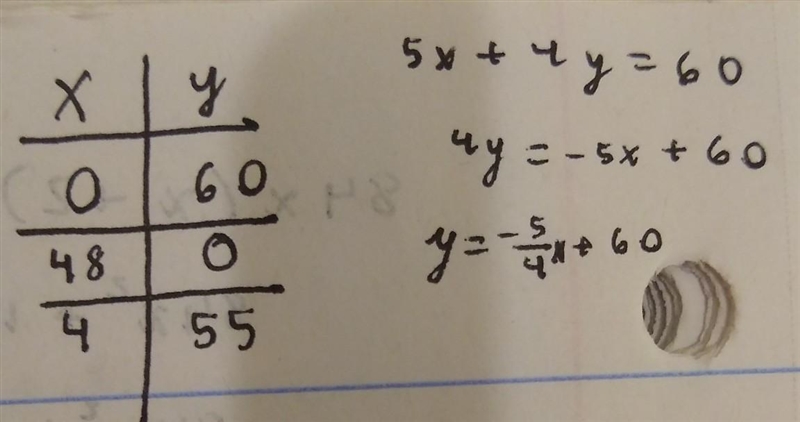 x y
0 60
48 0
4 55
5x + 4y = 60
4y = -5x + 60
y = -5/4x + 60